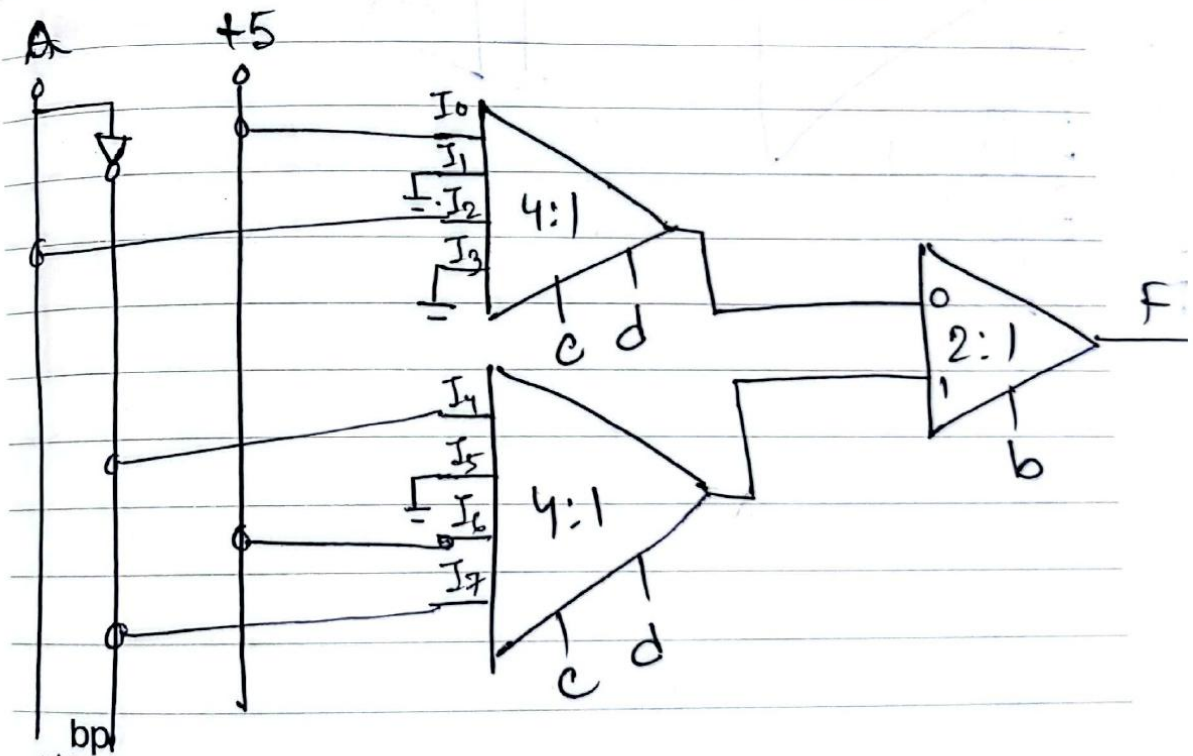 A +5
I0
I1
I2
I3
4:1
c d
I4
I5
I6
I7
4:1
c d
0
1
2:1
b
F
bp